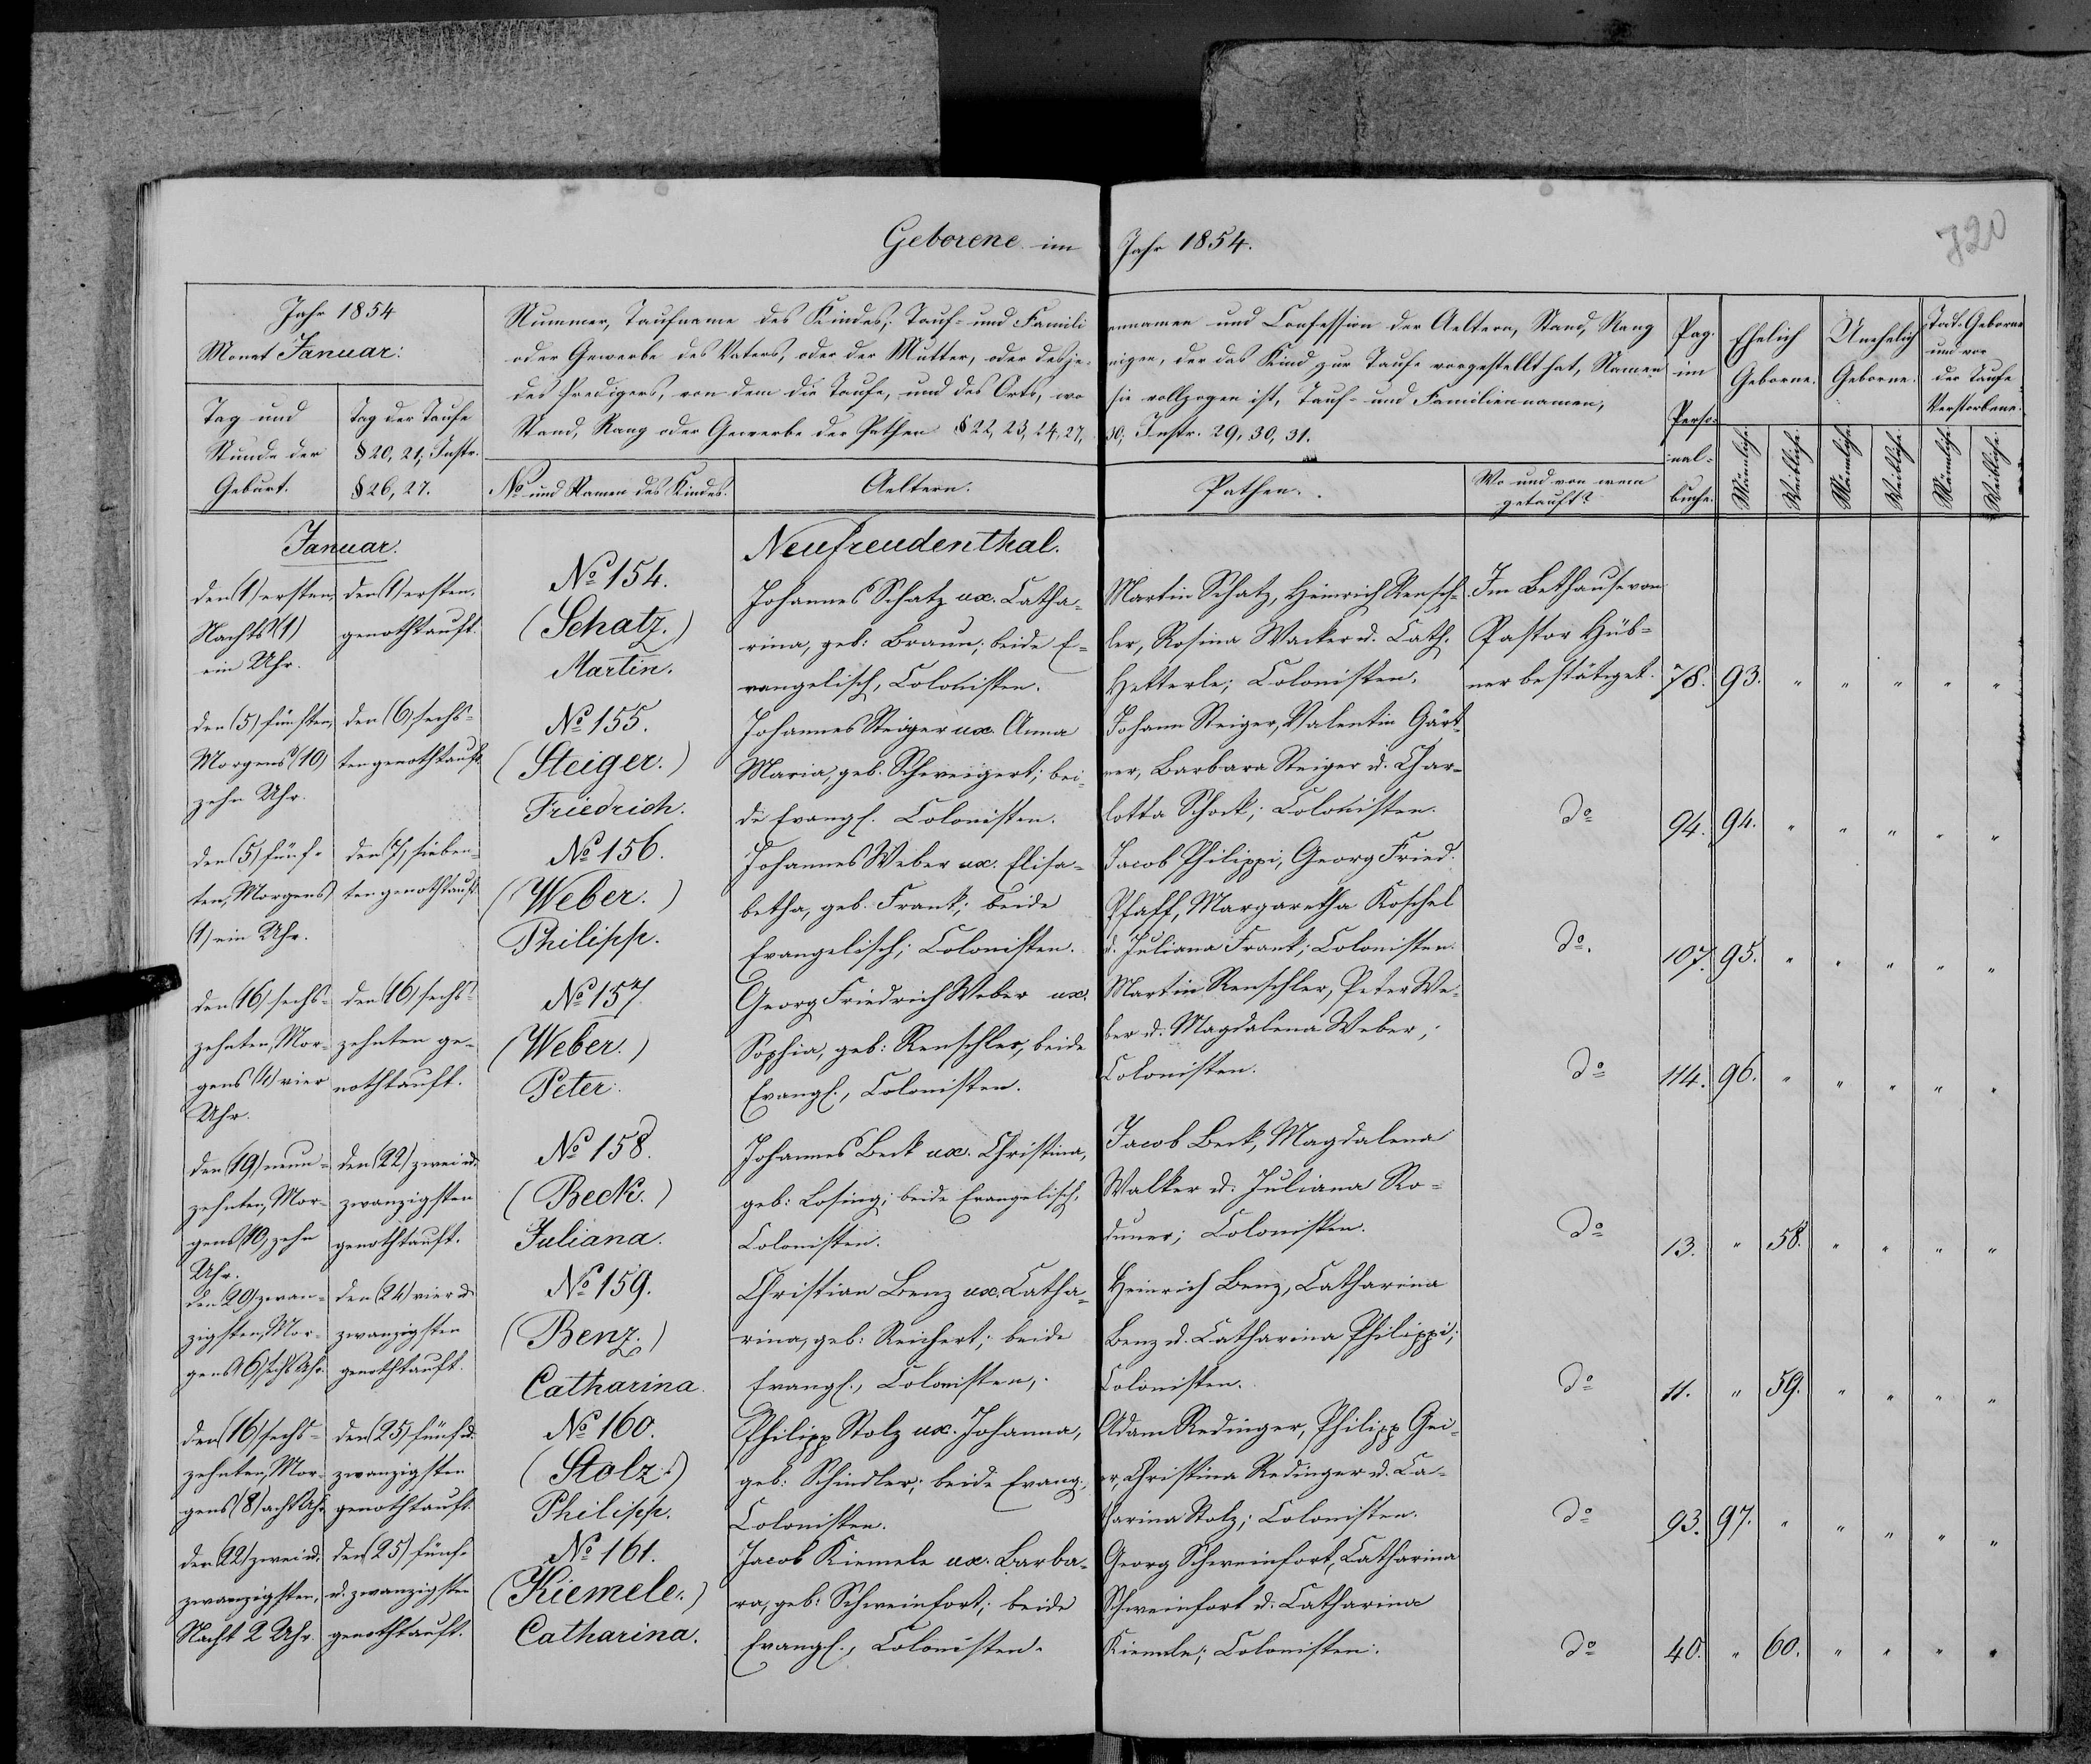 Geborene im Jahr 1854.
720
Jahr 1854
Monat Januar:
Tag und
Stunde der
Geburt.
Tag der Taufe
§ 20, 21; Instr.
§ 26, 27.
Nummer, Taufname des Kindes, Tauf- und Familiennamen und Confession der Aeltern, Stand, Rang
oder Gewerbe des Vaters, oder der Mutter, oder desjenigen, der das Kind zur Taufe vorgestellt hat, Namen
des Predigers, von dem die Taufe, und des Orts, wo sie vollzogen ist, Tauf- und Familiennamen,
Stand, Rang oder Gewerbe der Pathen § 22, 23, 24, 27, 30; Instr. 29, 30, 31.
No und Namen des Kindes.
Aeltern.
Pathen.
Wo und von wem
getauft?
Pag.
im
Perso-
nal-
buche.
Ehelich
Geborne.
Unehelich
Geborne.
Todt-Geborne
und vor
der Taufe
Verstorbene.
Männliche.
Weibliche.
Männliche.
Weibliche.
Männliche.
Weibliche.
Januar.
Neufreudenthal.
den (1) ersten,
Nachts (1)
ein Uhr.
den (1) ersten,
genothtauft.
No 154.
(Schatz.)
Martin.
Johannes Schatz ux. Catha-
rina, geb: Braun; beide E-
vangelisch, Colonisten.
Martin Schatz, Heinrich Rensch-
ler, Rosina Wacker u. Cath.
Hetterle; Colonisten.
Im Bethause von
Pastor Hüb-
ner bestätiget.
78. 93. " " " " "
den (5) fünften,
Morgens (10)
zehn Uhr.
den (6) sechs-
ten genothtauft
No 155.
(Steiger.)
Friedrich.
Johannes Steiger ux. Anna
Maria, geb. Schweigert; bei-
de Evangl. Colonisten.
Johann Steiger, Valentin Gärt-
ner, Barbara Steiger u. Char-
lotta Schock; Colonisten.
do
94. 94. " " " " "
den (5) fünf-
ten, Morgens
(1) ein Uhr.
den (7) sieben-
ten genothtauft
No 156.
(Weber.)
Philipp.
Johannes Weber ux. Elisa-
betha, geb. Frank; beide
Evangelisch; Colonisten.
Jacob Philippi, Georg Fried.
Pfaff, Margaretha Koschel
u. Juliana Frank; Colonisten.
do.
107. 95. " " " " "
den (16) sechs-
zehnten, Mor-
gens (4) vier
Uhr.
den (16) sechs-
zehnten ge-
nothtauft.
No 157.
(Weber.)
Peter.
Georg Friedrich Weber ux.
Sophia, geb: Renschler, beide
Evangl., Colonisten.
Martin Renschler, Peter We-
ber u. Magdalena Weber;
Colonisten.
do
114. 96. " " " " "
den (19) neun-
zehnten, Mor-
gens (10) zehn
Uhr.
den (22) zwei u.
zwanzigsten
genothtauft.
No 158.
(Beck.)
Juliana.
Johannes Beck ux. Christina,
geb: Losing; beide Evangelisch,
Colonisten.
Jacob Beck, Magdalena
Walker u. Juliana Ro-
duner; Colonisten.
do
13. " 58. " " " "
den (20) zwan-
zigsten, Mor-
gens (6) sechs Uhr.
den (24) vier u.
zwanzigsten
genothtauft.
No 159.
(Benz.)
Catharina.
Christian Benz ux. Catha-
rina, geb: Reichert; beide
Evangl., Colonisten,.
Heinrich Benz, Catharina
Benz u. Catharina Philippi;
Colonisten.
do
11. " 59. " " " "
den (16) sechs-
zehnten, Mor-
gens (8) acht Uhr
den (25) fünf u.
zwanzigsten
genothtauft
No 160.
(Stolz.)
Philipp.
Philipp Stolz ux. Johanna,
geb: Schindler; beide Evang.,
Colonisten.
Adam Redinger, Philipp Gei-
er, Christina Redinger u. Ca-
tharina Stolz; Colonisten.
do
93. 97. " " " " "
den (22) zwei u.
zwanzigsten,
Nacht 2 Uhr.
den (25) fünf-
u. zwanzigsten
genothtauft.
No 161.
(Kiemele.)
Catharina.
Jacob Kiemele ux. Barba-
ra, geb: Schweinfort; beide
Evangl., Colonisten.
Georg Schweinfort, Catharina
Schweinfort u. Catharina
Kiemele; Colonisten.
do
40. " 60. " " " "